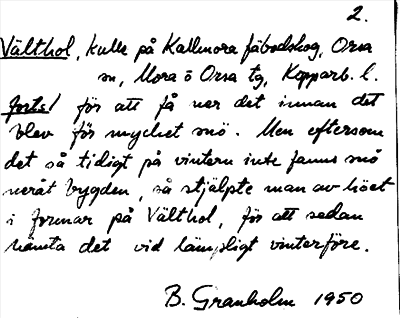 2.
Välthol, kulle på Kallmora fäbodskog, Orsa
sn, Mora o Orsa tg, Kopparb. l.
forts./ för att få ner det innan det
blev för mycket snö. Men eftersom
det så tidigt på vintern inte fanns snö
neråt bygden, så stjälpte man av höet
i former på Välthol, för att sedan
hämta det vid lämpligt vinterföre.
B. Granholm 1950